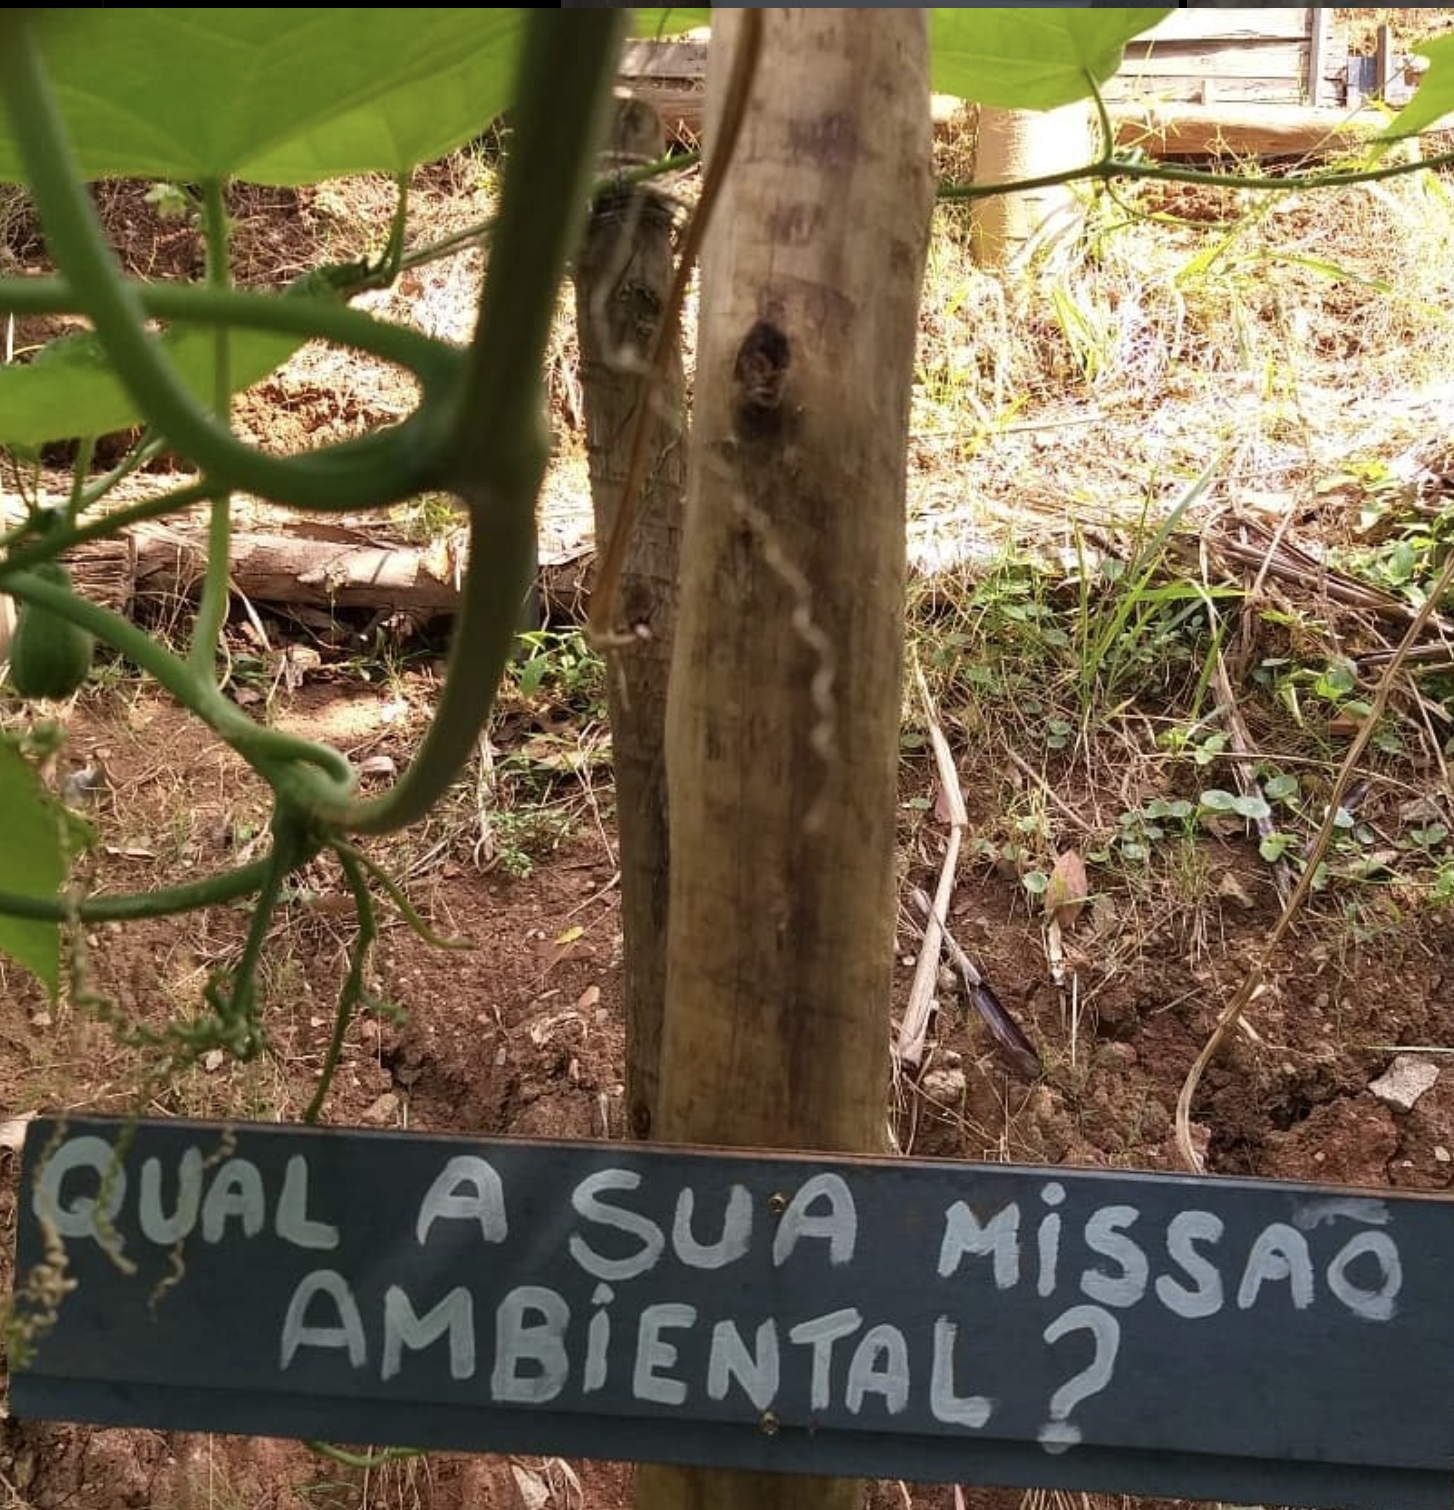 QUAL A SUA MiSSÃO
AMBiENTAL?